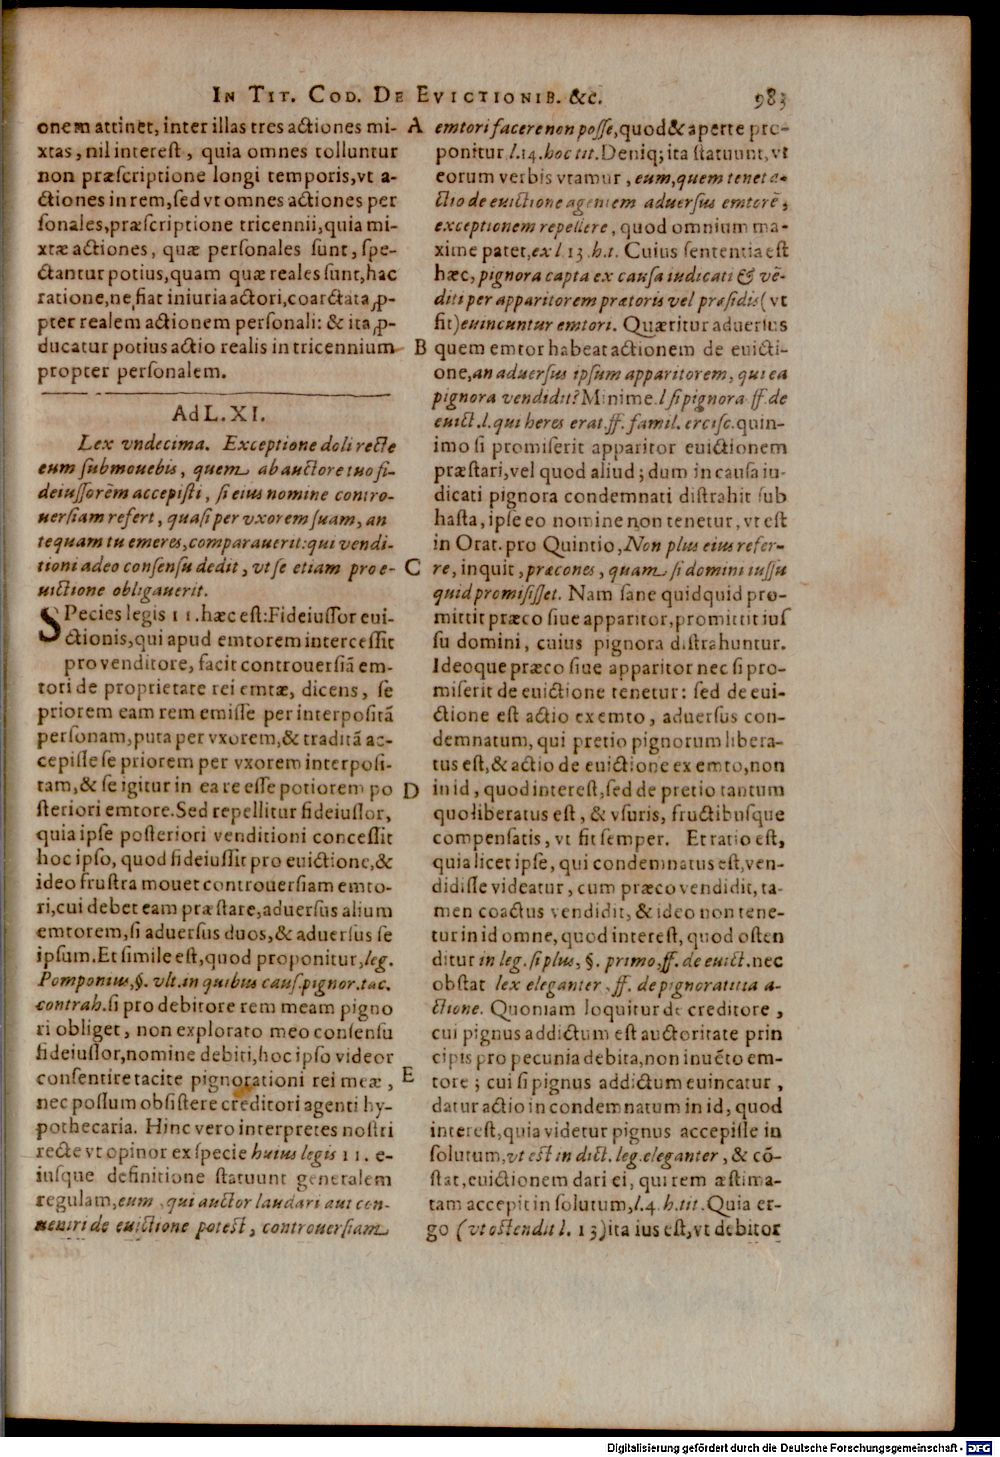 IN TIT. COD. DE EVICTIONIB. &c. 983
onem attinet, inter illas tres actiones mi-
xtas, nil interest, quia omnes tolluntur
non præscriptione longi temporis, vt a-
ctiones in rem, sed vt omnes actiones per
sonales, præscriptione tricennii, quia mi-
xtæ actiones, quæ personales sunt, spe-
ctantur potius, quam quæ reales sunt, hac
ratione, ne fiat iniuria actori, coarctata ꝓ-
pter realem actionem personali: & ita ꝓ-
ducatur potius actio realis in tricennium
propter personalem.
Ad L. XI.
Lex vndecima. Exceptione doli recte
eum submouebis, quem ab auctore tuo fi-
deiussorẽm accepisti, si eius nomine contro-
uersiam refert, quasi per vxorem suam, an
tequam tu emeres, comparauerit: qui vendi-
tioni adeo consensu dedit, vt se etiam pro e-
uictione obligauerit.
SPecies legis 11. hæc est: Fideiussor eui-
ctionis, qui apud emtorem intercessit
pro venditore, facit controuersiã em-
tori de proprietate rei emtæ, dicens, se
priorem eam rem emisse per interpositã
personam, puta per vxorem, & traditã ac-
cepisse se priorem per vxorem interposi-
tam, & se igitur in ea re esse potiorem po
steriori emtore. Sed repellitur fideiussor,
quia ipse posteriori venditioni concessit
hoc ipso, quod fideiussit pro euictione, &
ideo frustra mouet controuersiam emto-
ri, cui debet eam præstare, aduersus alium
emtorem, si aduersus duos, & aduersus se
ipsum. Et simile est, quod proponitur, leg.
Pomponius, §. vlt. in quibus caus. pignor. tac.
contrah. si pro debitore rem meam pigno
ri obliget, non explorato meo consensu
fideiussor, nomine debiti, hoc ipso videor
consentire tacite pignorationi rei meæ,
nec possum obsistere creditori agenti hy-
pothecaria. Hinc vero interpretes nostri
recte vt opinor ex specie huius legis 11. e-
iusque definitione statuunt generalem
regulam, eum, qui auctor laudari aut con-
ueniri de euictione potest, controuersiam
A emtori facere non posse, quod & aperte pro-
ponitur l. 14. hoc tit. Deniq; ita statuunt, vt
eorum verbis vtamur, eum, quem tenet a-
ctio de euictione agentem aduersus emtorẽ,
exceptionem repellere, quod omnium ma-
xime patet, ex l. 13. h. t. Cuius sententia est
hæc, pignora capta ex causa iudicati & vẽ-
diti per apparitorem prætoris vel præsidis (vt
fit) euincuntur emtori. Quæritur aduersus
B quem emtor habeat actionem de euicti-
one, an aduersus ipsum apparitorem, qui ea
pignora vendidit? Minime. l. si pignora ff. de
euict. l. qui heres erat. ff. famil. ercisc. quin-
imo si promiserit apparitor euictionem
præstari, vel quod aliud; dum in causa iu-
dicati pignora condemnati distrahit sub
hasta, ipse eo nomine non tenetur, vt est
in Orat. pro Quintio, Non plus eius refer-
C re, inquit, præcones, quam si domini iussu
quid promisisset. Nam sane quidquid pro-
mittit præco siue apparitor, promittit ius
su domini, cuius pignora distrahuntur.
Ideoque præco siue apparitor nec si pro-
miserit de euictione tenetur: sed de eui-
ctione est actio ex emto, aduersus con-
demnatum, qui pretio pignorum libera-
tus est, & actio de euictione ex emto, non
D in id, quod interest, sed de pretio tantum
quo liberatus est, & vsuris, fructibusque
compensatis, vt fit semper. Et ratio est,
quia licet ipse, qui condemnatus est, ven-
didisse videatur, cum præco vendidit, ta-
men coactus vendidit, & ideo non tene-
tur in id omne, quod interest, quod osten
ditur in leg. si plus, §. primo, ff. de euict. nec
obstat lex eleganter, ff. de pignoratitia a-
ctione. Quoniam loquitur de creditore,
cui pignus addictum est auctoritate prin
cipis pro pecunia debita, non inuẽto em-
E tore; cui si pignus addictum euincatur,
datur actio in condemnatum in id, quod
interest, quia videtur pignus accepisse in
solutum, vt est in dict. leg. eleganter, & cõ-
stat, euictionem dari ei, qui rem æstima-
tam accepit in solutum, l. 4. h. tit. Quia er-
go (vt ostendit l. 13) ita ius est, vt debitor
Digitalisierung gefördert durch die Deutsche Forschungsgemeinschaft - DFG